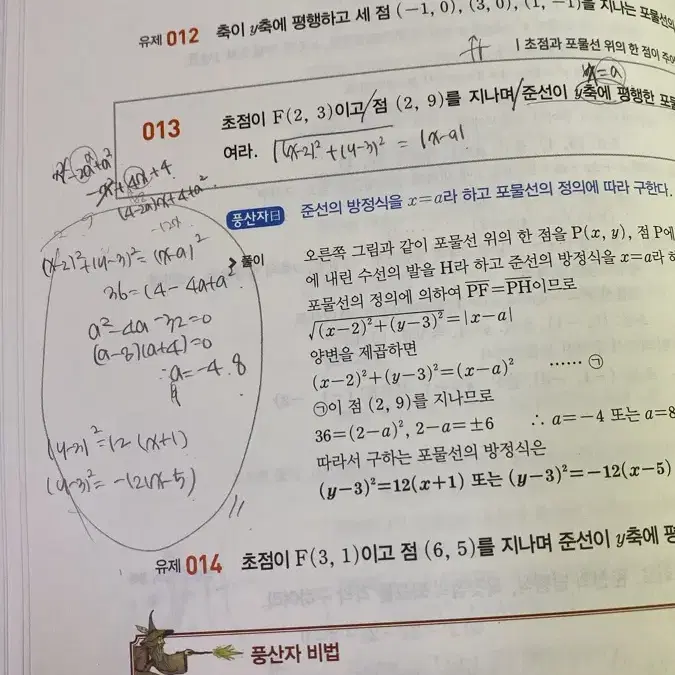 유제 012 축이 y축에 평행하고 세 점 (-1, 0), (3, 0), (1, -1)을 지나는 포물선
| 초점과 포물선 위의 한 점이 주어
x=a
013 초점이 F(2, 3)이고 점 (2, 9)를 지나며 준선이 y축에 평행한 포물
여라. √(x-2)²+(y-3)² = |x-a|
x²-2ax+a²
-x²+4x+4
(4-2a)x+4+a²
-12x
풍산자日 준선의 방정식을 x=a라 하고 포물선의 정의에 따라 구한다.
풀이 오른쪽 그림과 같이 포물선 위의 한 점을 P(x, y), 점 P에
에 내린 수선의 발을 H라 하고 준선의 방정식을 x=a라 하
포물선의 정의에 의하여 PF=PH이므로
√(x-2)²+(y-3)²=|x-a|
양변을 제곱하면
(x-2)²+(y-3)²=(x-a)² …… ㉠
㉠이 점 (2, 9)를 지나므로
36=(2-a)², 2-a=±6 ∴ a=-4 또는 a=8
따라서 구하는 포물선의 방정식은
(y-3)²=12(x+1) 또는 (y-3)²=-12(x-5)
(x-2)²+(y-3)²=(x-a)²
36=(4-4a+a²
a²-4a-32=0
(a-8)(a+4)=0
∴a=-4. 8
(y-3)²=12(x+1)
(y-3)²=-12(x-5)
유제 014 초점이 F(3, 1)이고 점 (6, 5)를 지나며 준선이 y축에 평
풍산자 비법